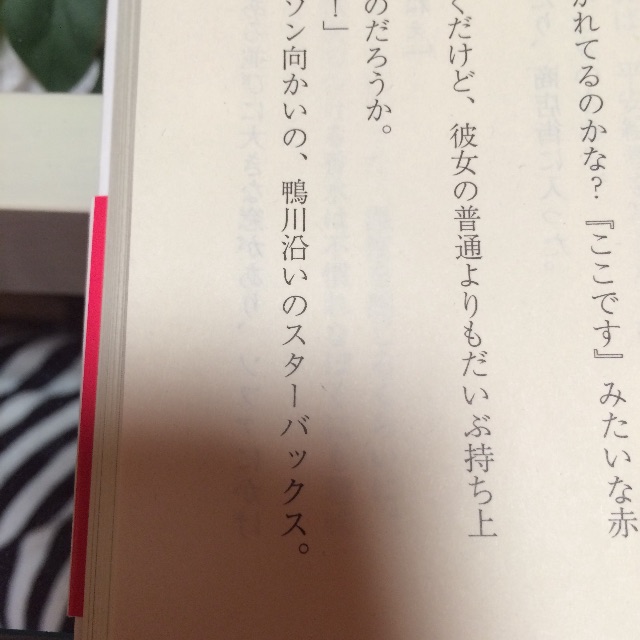 れてるのかな？『ここです』みたいな赤
くだけど、彼女の普通よりもだいぶ持ち上
のだろうか。
！」
ソン向かいの、鴨川沿いのスターバックス。